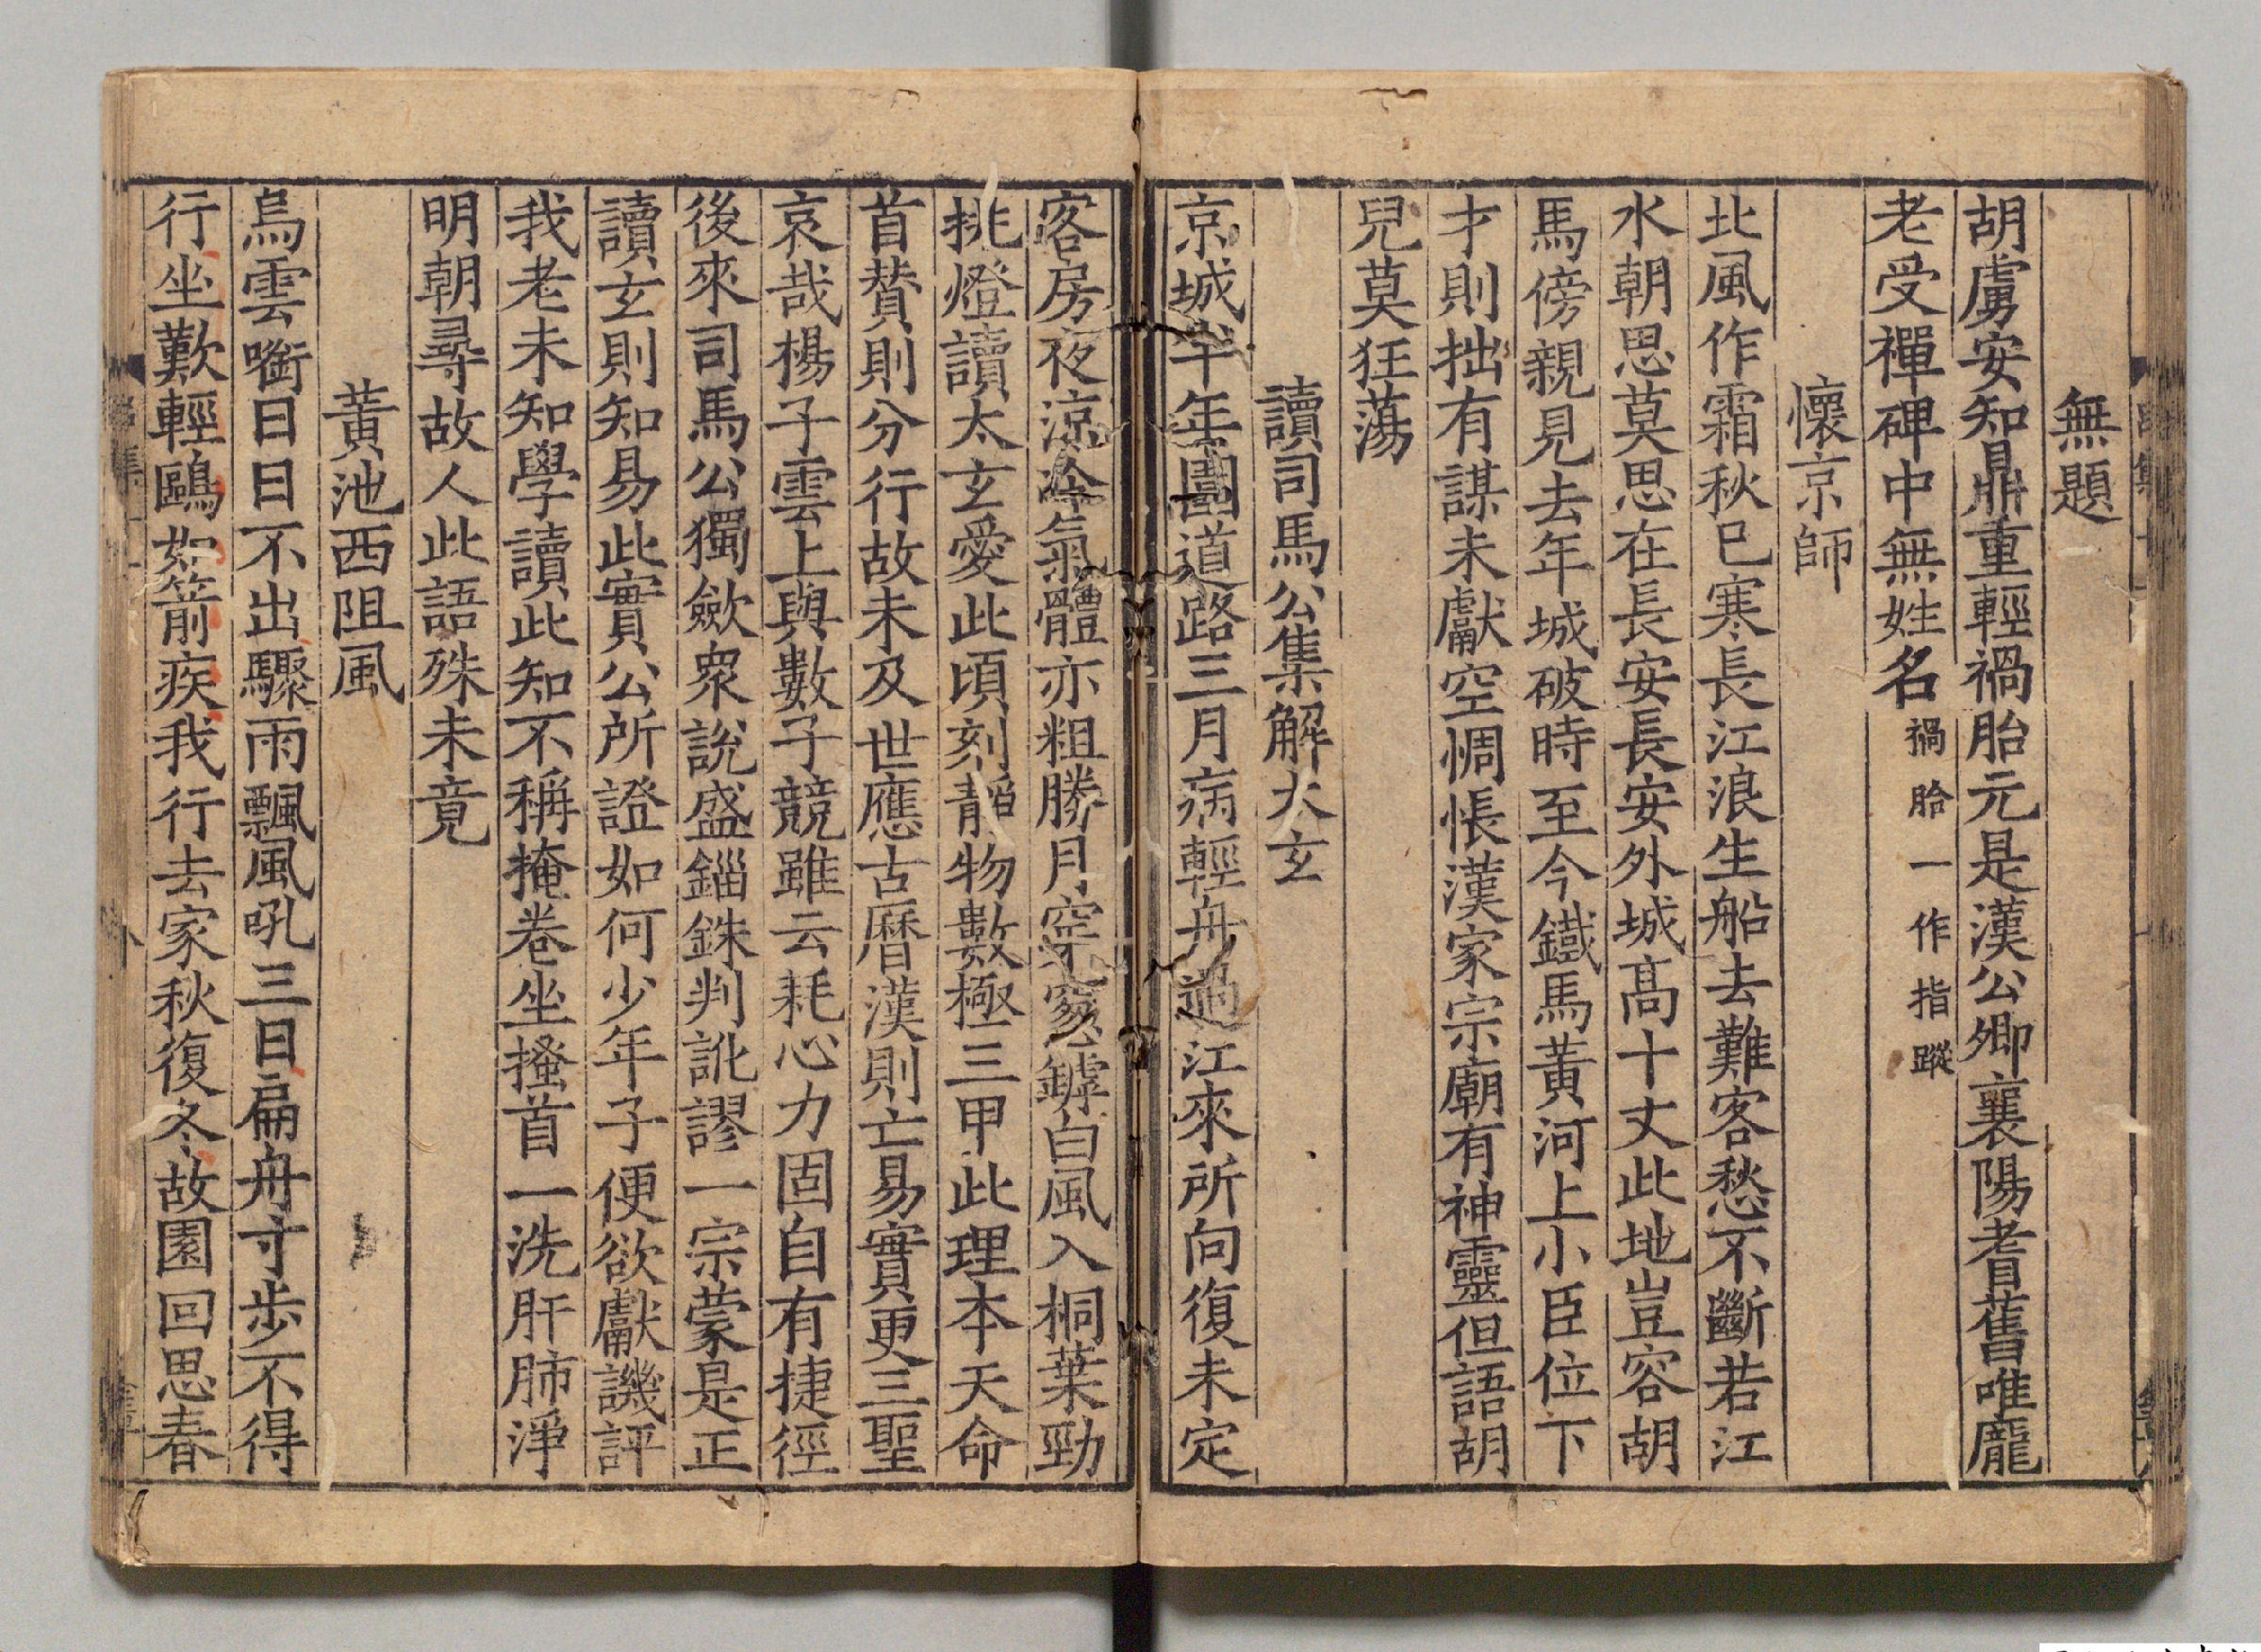 無題
胡虜安知鼎重輕禍胎元是漢公卿襄陽耆舊唯龐
老受禪碑中無姓名禍胎一作指蹤
懷京師
北風作霜秋已寒長江浪生船去難客愁不斷若江
水朝思莫思在長安長安外城高十丈此地豈容胡
馬傍親見去年城破時至今鐵馬黃河上小臣位下
才則拙有謀未獻空惆悵漢家宗廟有神靈但語胡
兒莫狂蕩
讀司馬公集解太玄
京城半年圍道路三月病輕舟過江來所向復未定
客房夜涼冷氣體亦粗勝月穿窻罅白風入桐葉勁
挑燈讀太玄愛此頃刻靜物數極三甲此理本天命
首贊則分行故未及世應古曆漢則亡易實更三聖
哀哉楊子雲上與數子競雖云耗心力固自有捷徑
後來司馬公獨斂衆說盛錙銖判訛謬一宗蒙是正
讀玄則知易此實公所證如何少年子便欲獻譏評
我老未知學讀此知不稱掩卷坐搔首一洗肝肺淨
明朝尋故人此語殊未竟
黃池西阻風
烏雲㘅日日不出驟雨飄風吼三日扁舟寸步不得
行坐歎輕鷗如箭疾我行去家秋復冬故園回思春